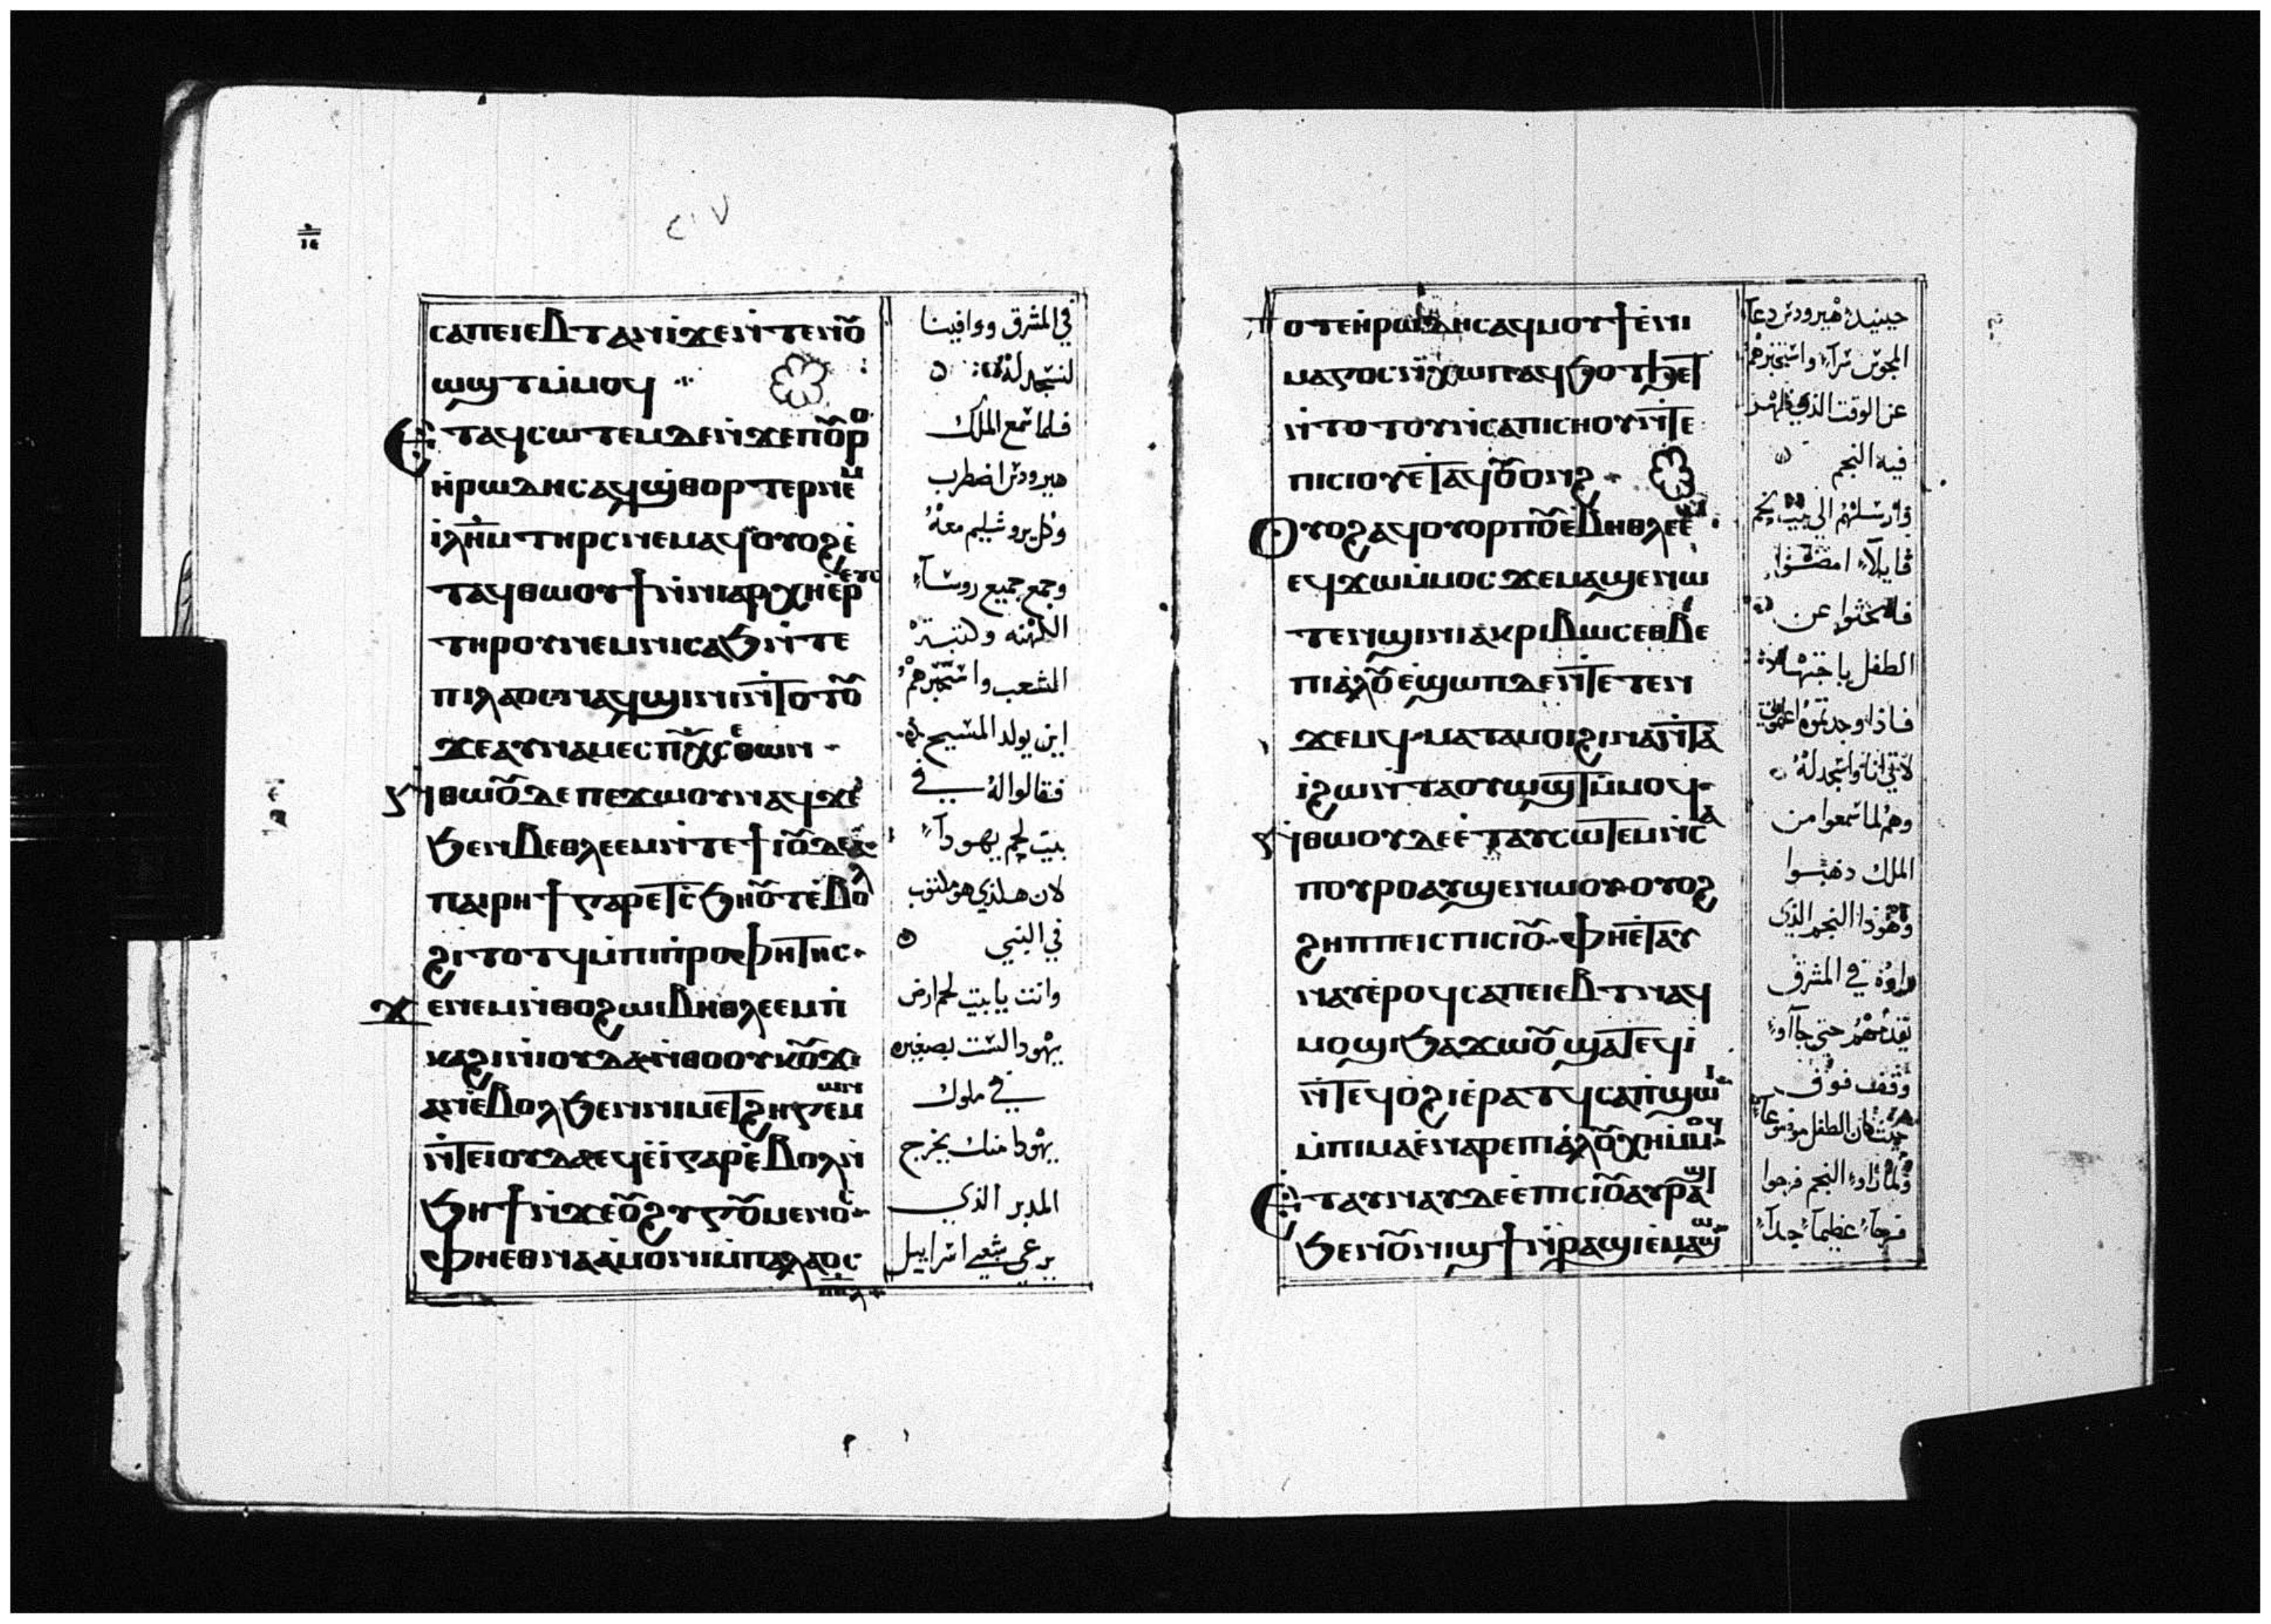 ⲥⲁⲡⲉⲓⲉⲃⲧⲁⲛⲓ̀ϫⲉⲛ̀ⲧⲉⲛⲟ̅ⲩ
ⲱϣⲧⲙ̀ⲙⲟϥ
ⲉⲧⲁϥⲥⲱⲧⲉⲙⲇⲉⲛ̀ϫⲉⲡⲟ̅ⲩⲣⲟ
ⲏ̀ⲣⲱⲇⲏⲥⲁϥϣ̀ⲑⲟⲣⲧⲉⲣⲛⲉⲙ
ⲓ̀ⲗ̅ⲏ̅ⲙ̅ⲧⲏⲣⲥⲛⲉⲙⲁϥⲟⲩⲟϩⲉ̀
ⲧⲁϥⲑⲱⲟⲩϯⲛ̀ⲛⲓⲁⲣⲭⲏⲉ̀ⲣⲉⲩⲥ
ⲧⲏⲣⲟⲩⲛⲉⲙⲛⲓⲥⲁϧⲛ̀ⲧⲉ
ⲡⲓⲗⲁⲟⲥⲛⲁϥϣⲓⲛⲓⲛ̀ⲧⲟⲧⲟ̅ⲩ
ϫⲉⲁⲩⲛⲁⲙⲉⲥⲡⲭ̅ⲥ̅ⲑⲱⲛ
ⲛ̀ⲑⲱⲟ̅ⲩⲇⲉⲡⲉϫⲱⲟⲩⲛⲁϥϫⲉ
ϧⲉⲛⲃⲉⲑⲗⲉⲉⲙⲛ̀ⲧⲉϯⲓⲟ̅ⲩⲇⲉⲁ
ⲡⲁⲓⲣⲏϯⲅⲁⲣⲉⲧⲥ̀ϧⲏⲟ̅ⲩⲧⲉ̀ⲃⲟⲗ
ϩⲓⲧⲟⲧϥⲙ̀ⲡⲓⲡ̀ⲣⲟⲫⲏⲧⲏⲥ
ϫⲉⲛⲉⲙⲛ̀ⲑⲟϩⲱⲓⲃⲏⲑⲗⲉⲉⲙⲡ̀
ⲕⲁϩⲓⲛ̀ⲓⲟⲩⲇⲁⲛ̀ⲑⲟⲟⲩⲕⲟ̅ⲩϫⲓ
ⲁⲛⲉ̀ⲃⲟⲗϧⲉⲛⲛⲓⲙⲉⲧϩⲏⲅⲉⲙⲱⲛ
ⲛ̀ⲧⲉⲓⲟⲩⲇⲁⲉϥⲉ̀ⲓ̀ⲅⲁⲣⲉ̀ⲃⲟⲗⲛ̀
ϧⲏϯⲛ̀ϫⲉⲟ̅ⲩϩⲩⲅⲟ̅ⲩⲙⲉⲛⲟⲥ
ⲫⲏⲉⲑⲛⲁⲁⲙⲟⲛⲓⲙ̀ⲡⲁⲗⲁⲟⲥ
في المشرق ووافينا
لنسجد له
فلما سمع الملك
هيرودس اضطرب
وكل يروشليم معه
وجمع جميع روسآء
الكهنه وكتبة
الشعب واستخبرهم
اين يولد المسيح
فقالوا له في
بيت لحم يهودآء
لان هذا الذي هو مكتوب
في النبي
وانت يا بيت لحم ارض
يهودا لست بصغيره
في ملوك
يهودا منك يخرج
المدبر الذي
يرعى شعبي اسراييل
ⲧⲟⲧⲉⲏ̀ⲣⲱⲇⲏⲥⲁϥⲙⲟⲩϯⲉ̀ⲛⲓ
ⲙⲁⲅⲟⲥⲛ̀ⲭⲱⲡⲁϥϧⲟⲧϧⲉⲧ
ⲛ̀ⲧⲟⲧⲟⲩⲛ̀ⲥⲁⲡⲓⲥⲏⲟⲩⲛ̀ⲧⲉ
ⲡⲓⲥⲓⲟⲩⲉⲧⲁϥⲟ̅ⲩⲟⲛϩ
ⲟⲩⲟϩⲁϥⲟⲩⲟⲣⲡⲟ̅ⲩⲉ̀ⲃⲏⲑⲗⲉⲉⲙ
ⲉϥϫⲱⲙ̀ⲙⲟⲥϫⲉⲙⲁϣⲉⲛⲱ
ⲧⲉⲛϣⲓⲛⲓⲁⲕⲣⲓⲃⲱⲥⲉⲑⲃⲉ
ⲡⲓⲁ̀ⲗⲟ̅ⲩⲉ̀ϣⲱⲡⲇⲉⲛ̀ⲧⲉⲧⲉⲛ
ϫⲉⲙϥⲙⲁⲧⲁⲙⲟⲓϩⲓⲛⲁⲛ̀ⲧⲁ
ⲓ̀ϩⲱⲛ̀ⲧⲁⲟⲩⲱϣⲧⲙ̀ⲙⲟϥ
ⲛ̀ⲑⲱⲟⲩⲇⲉⲉ̀ⲧⲁⲩⲥⲱⲧⲉⲙⲛ̀ⲥⲁ
ⲡⲟⲩⲣⲟⲁⲩϣⲉⲛⲱⲟⲩⲟⲩⲟϩ
ϩⲏⲡⲡⲉⲓⲥⲡⲓⲥⲓⲟ̅ⲩⲫⲏⲉ̀ⲧⲁⲩ
ⲛⲁⲩⲉ̀ⲣⲟϥⲥⲁⲡⲉⲓⲉⲃⲧⲛⲁϥ
ⲙⲟϣⲓϧⲁϫⲱⲟ̅ⲩϣⲁⲧⲉϥⲓ̀
ⲛ̀ⲧⲉϥⲟ̀ϩⲓⲉ̀ⲣⲁⲧϥⲥⲁⲡ̀ϣⲱⲓ
ⲙ̀ⲡⲓⲙⲁⲉ̀ⲛⲁⲣⲉⲡⲓⲁ̀ⲗⲟ̅ⲩⲭⲏⲙ̀ⲙⲟϥ
ⲉⲧⲁⲩⲛⲁⲩⲇⲉⲉ̀ⲡⲓⲥⲓⲟ̅ⲩⲁⲩⲣⲁϣⲓ
ϧⲉⲛⲟ̅ⲩⲛⲓϣϯⲛ̀ⲣⲁϣⲓⲉ̀ⲙⲁϣⲱ
حينيذ هيرودس دعا
المجوس سرآء واستخبرهم
عن الوقت الذي ظهر
فيه النجم
وارسلهم الي بيت لحم
قايلآء امضوا
فابحثوا عن
الطفل باجتهاد
فاذا وجدتموه اعلموني
لآتي انا واسجد له
وهم لما سمعوا من
الملك ذهبوا
وهوذا النجم الذي
راوه في المشرق
يقدمهم حتي جآآء
وقف فوق
حيث كان الطفل موضوعآء
ولما راوء النجم فرحوا
فرحآء عظيمآء جدآء